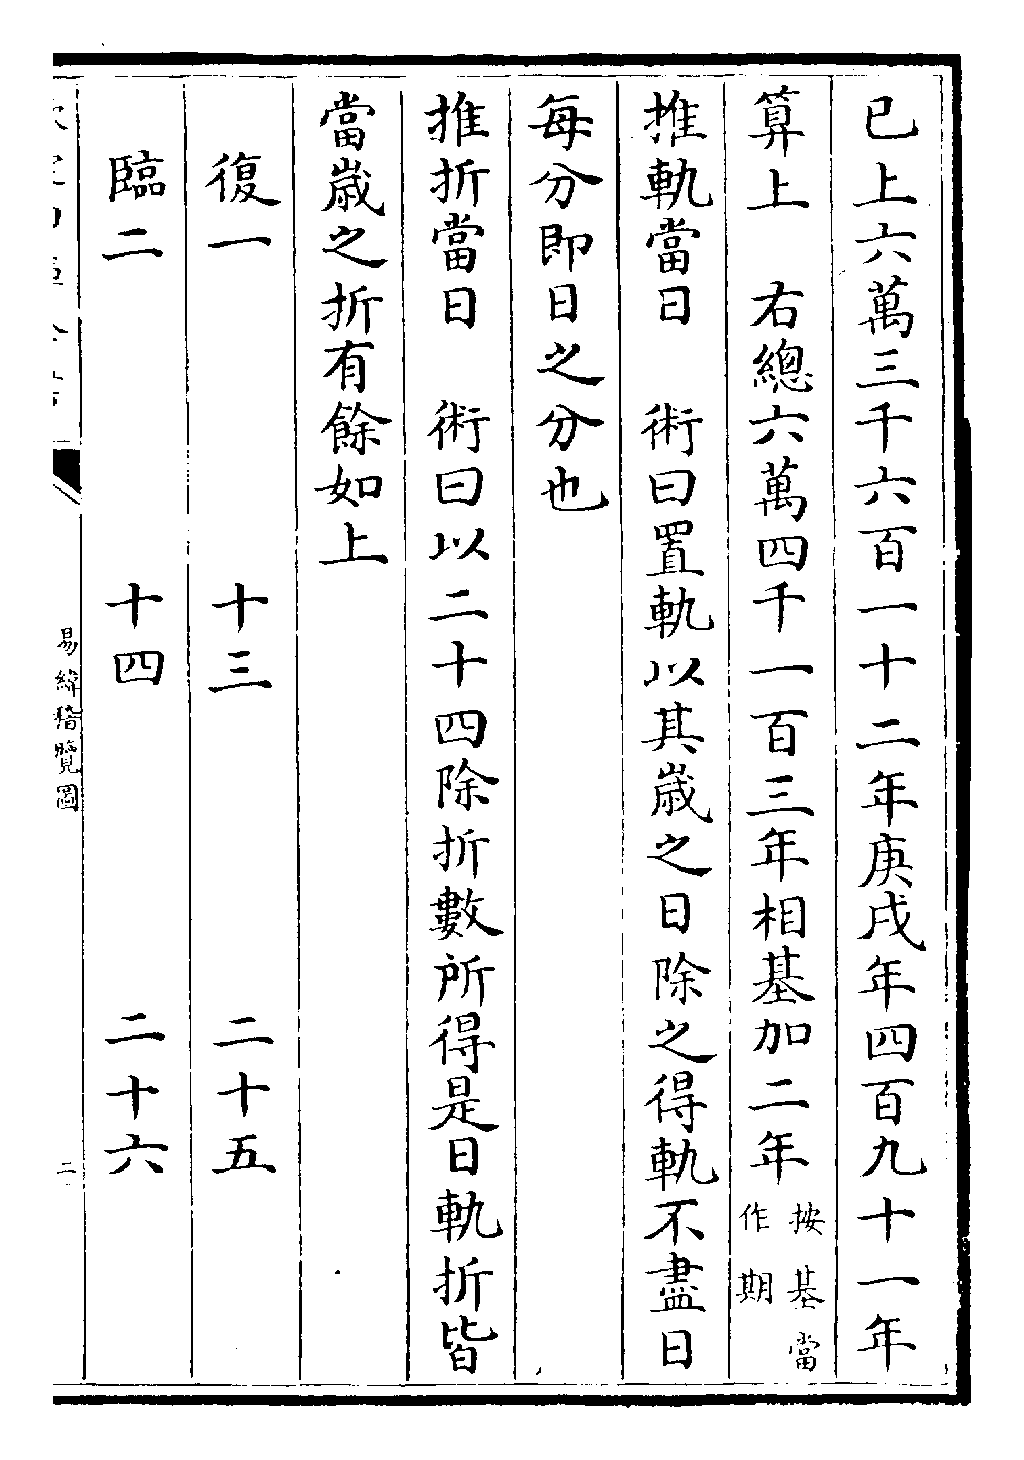 已上六萬三千六百一十二年庚戌年四百九十一年
算上　右總六萬四千一百三年相基加二年按基當作期
推軌當日　術曰置軌以其歲之日除之得軌不盡日
每分即日之分也
推折當日　術曰以二十四除折數所得是日軌折皆
當歲之折有餘如上
復一　十三　二十五
臨二　十四　二十六
易緯稽覽圖
二